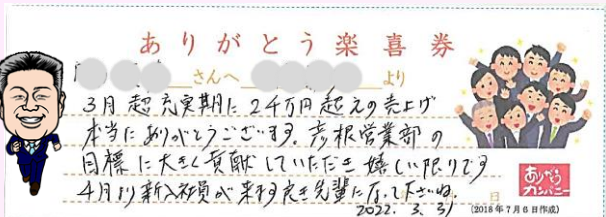 ありがとう楽喜券
さんへ より
3月超充実期に24万円超えの売上げ
本当にありがとうございます。彦根営業部の
目標に大きく貢献していただき嬉しい限りです
4月より新入社員が来ます良き先輩になって下さいね。
2022. 3. 31 日
ありがとう
カンパニー
(2018年7月6日作成)